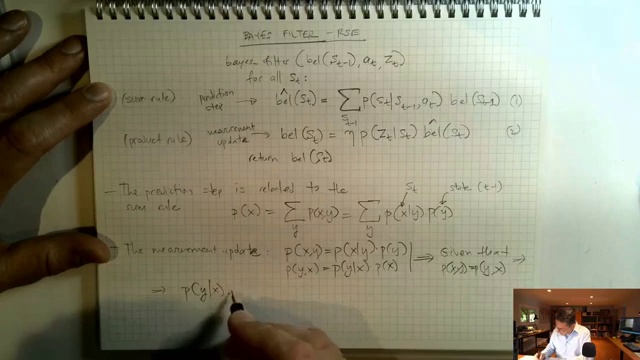 BAYES FILTER - RSE
bayes filter (bel(St-1), at, Zt)
for all St:
(sum rule) prediction step → b̂el(St) = ∑St-1 p(St|St-1, at) bel(St-1) (1)
(product rule) measurement update → bel(St) = η p(Zt|St) b̂el(St) (2)
return bel(St)
St state (t-1)
- The prediction step is related to the
sum rule p(x) = ∑y p(x,y) = ∑y p(x|y) p(y)
- The measurement update. p(x,y) = p(x|y) · p(y) ⟹ Given that
p(y,x) = p(y|x) p(x) p(x,y) = p(y,x)
⟹ p(y|x)